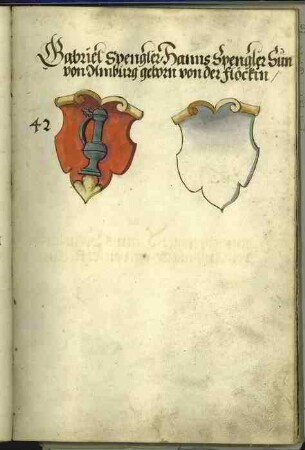 Gabriel Spengler Hanns Spengler Sun
von Nmburg geborn von der Flockin /
42